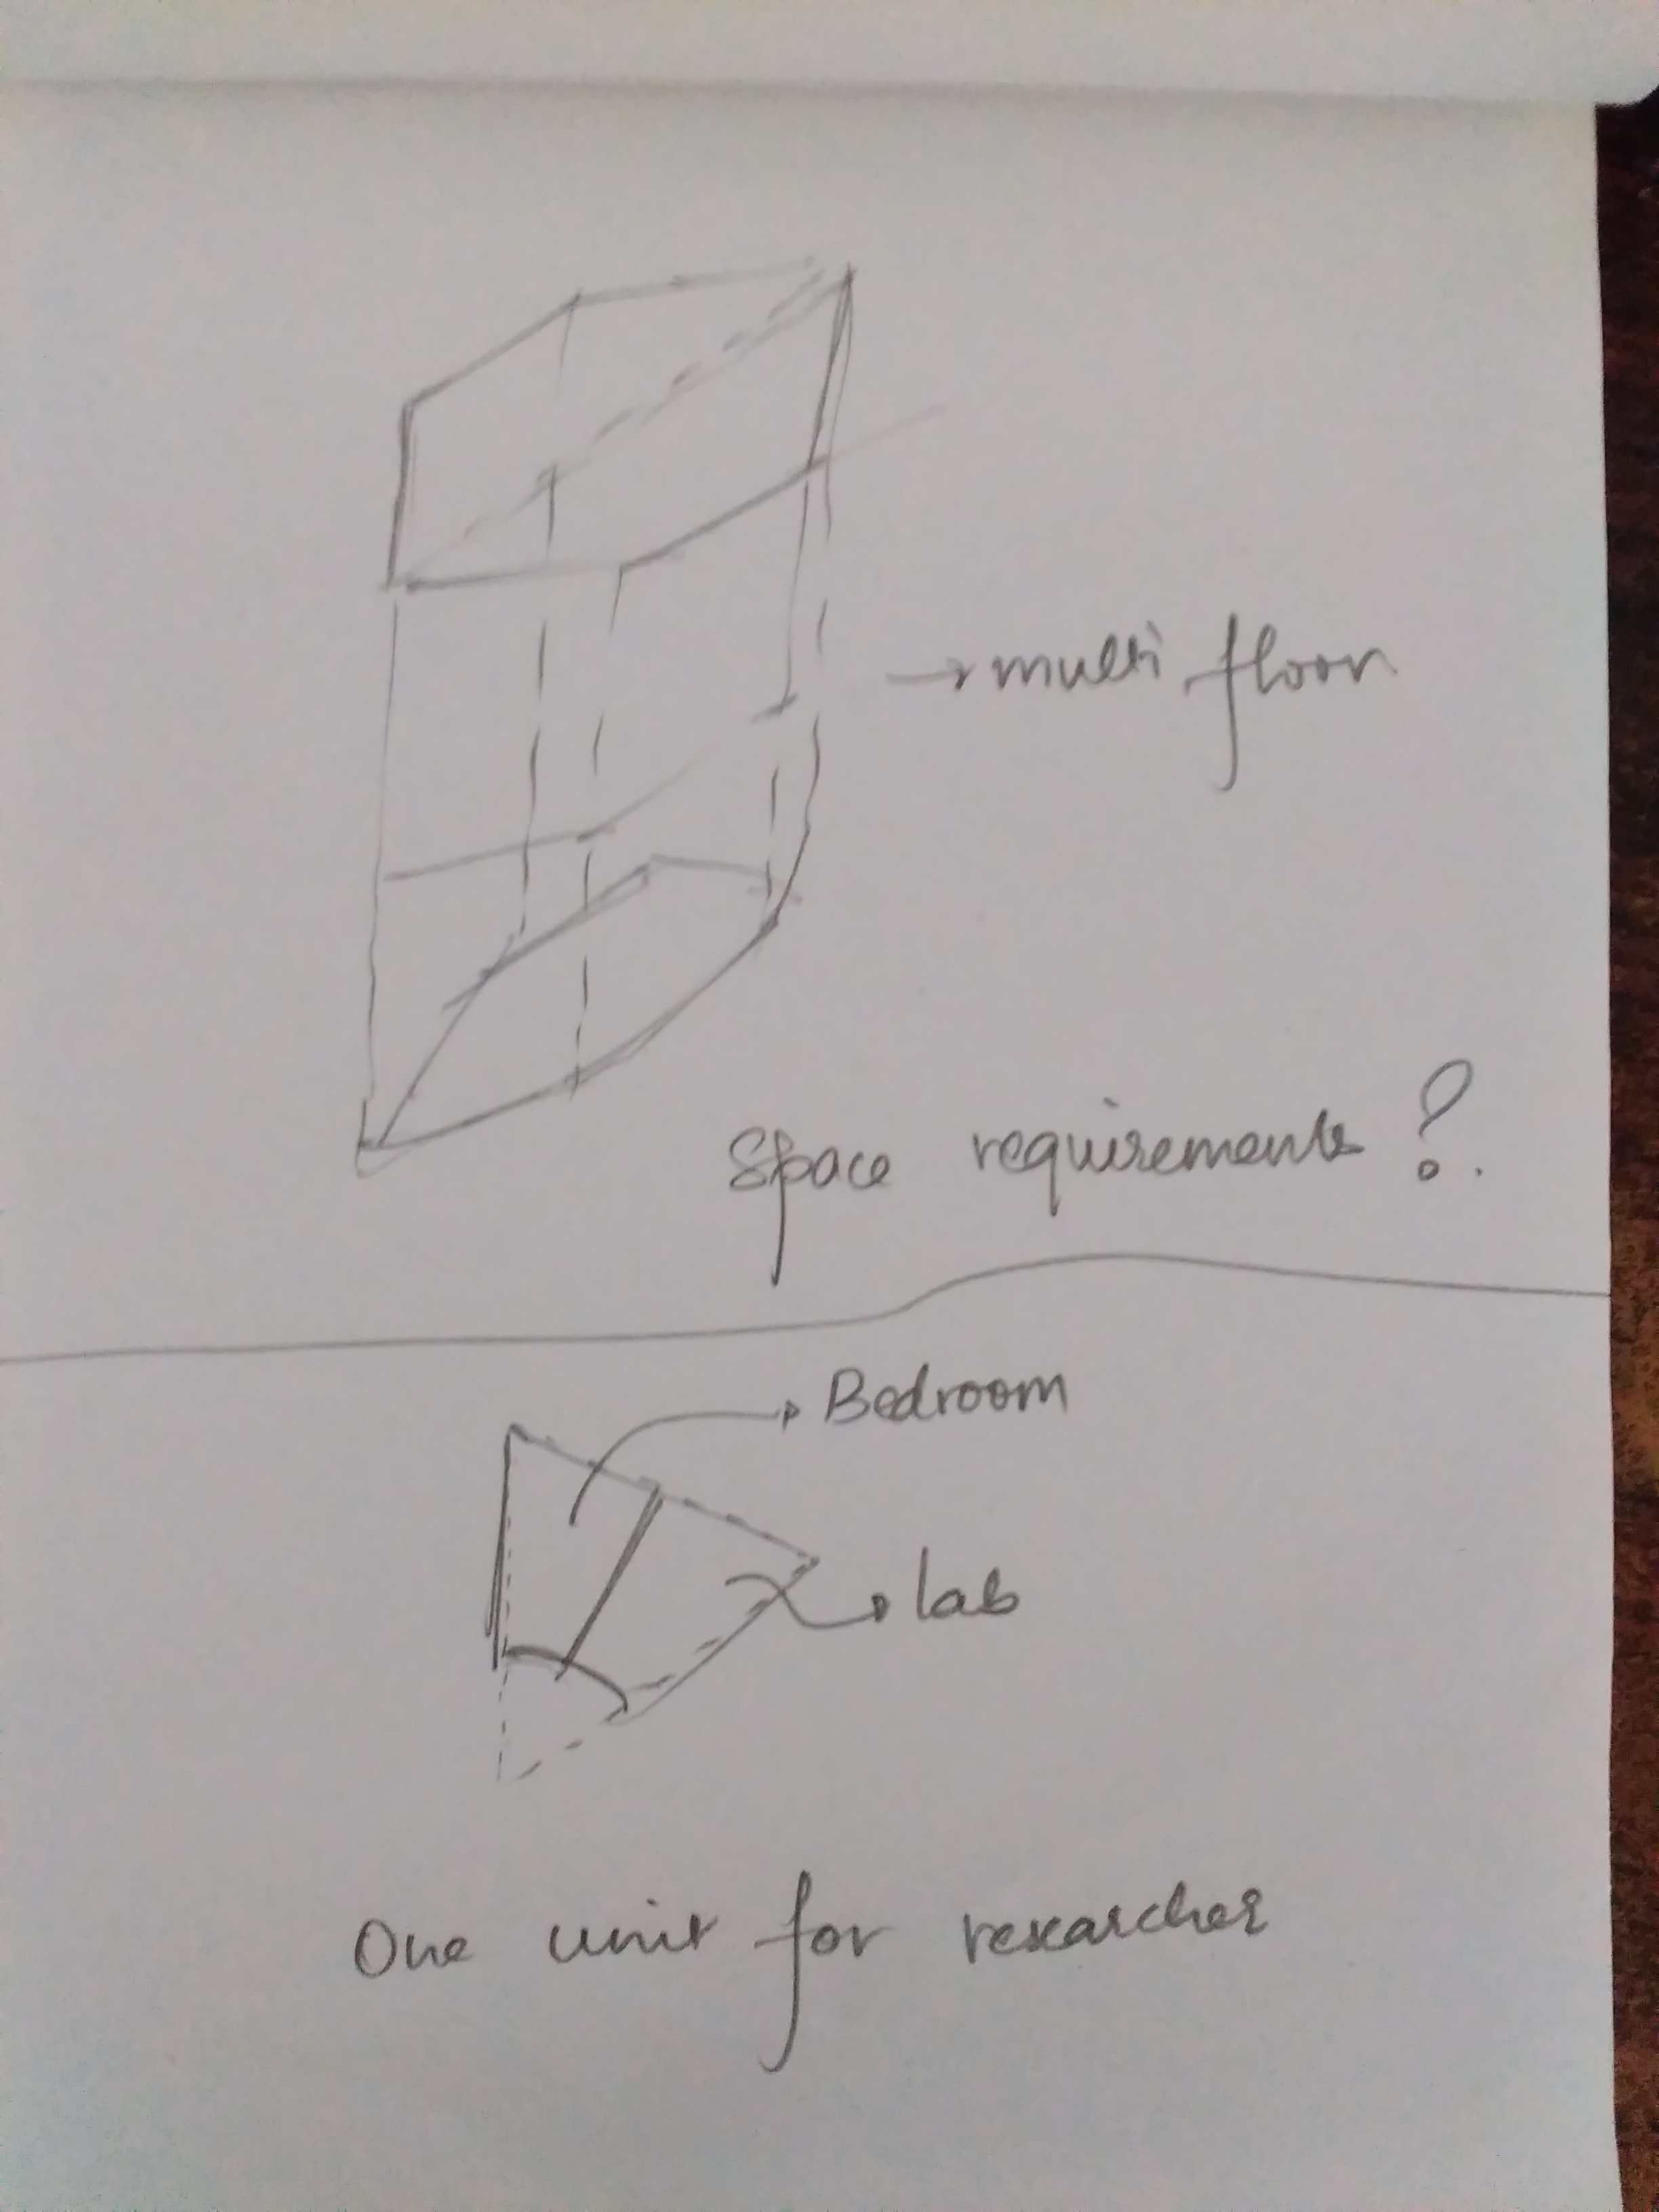 → multi floor
Space requirements ?.
Bedroom
lab
One unit for researcher